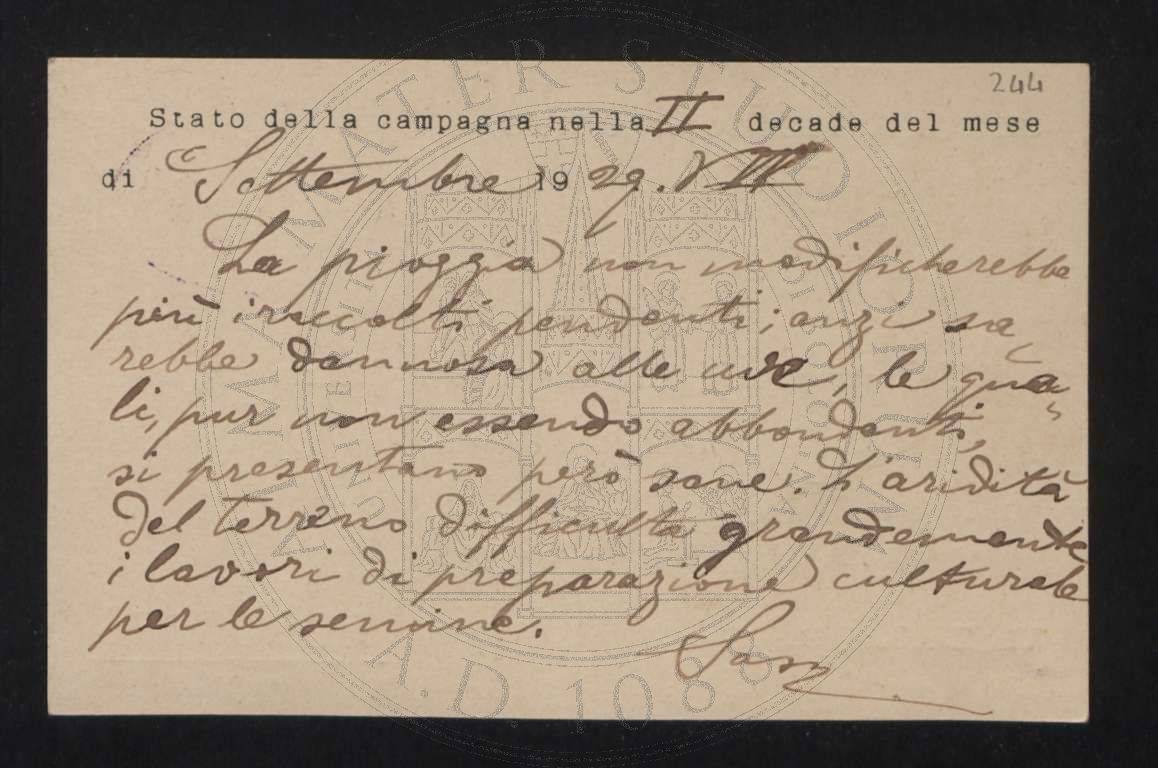 244
Stato della campagna nella II decade del mese
di Settembre 1929. VII
La pioggia non modificherebbe
più i raccolti pendenti; anzi sa
rebbe dannosa alle uve, le qua
li, pur non essendo abbondanti,
si presentano però sane. L'aridità
del terreno difficulta grandemente
i lavori di preparazione culturale
per le semine.
ALMA MATER STUDIORUM
A.D. 1088